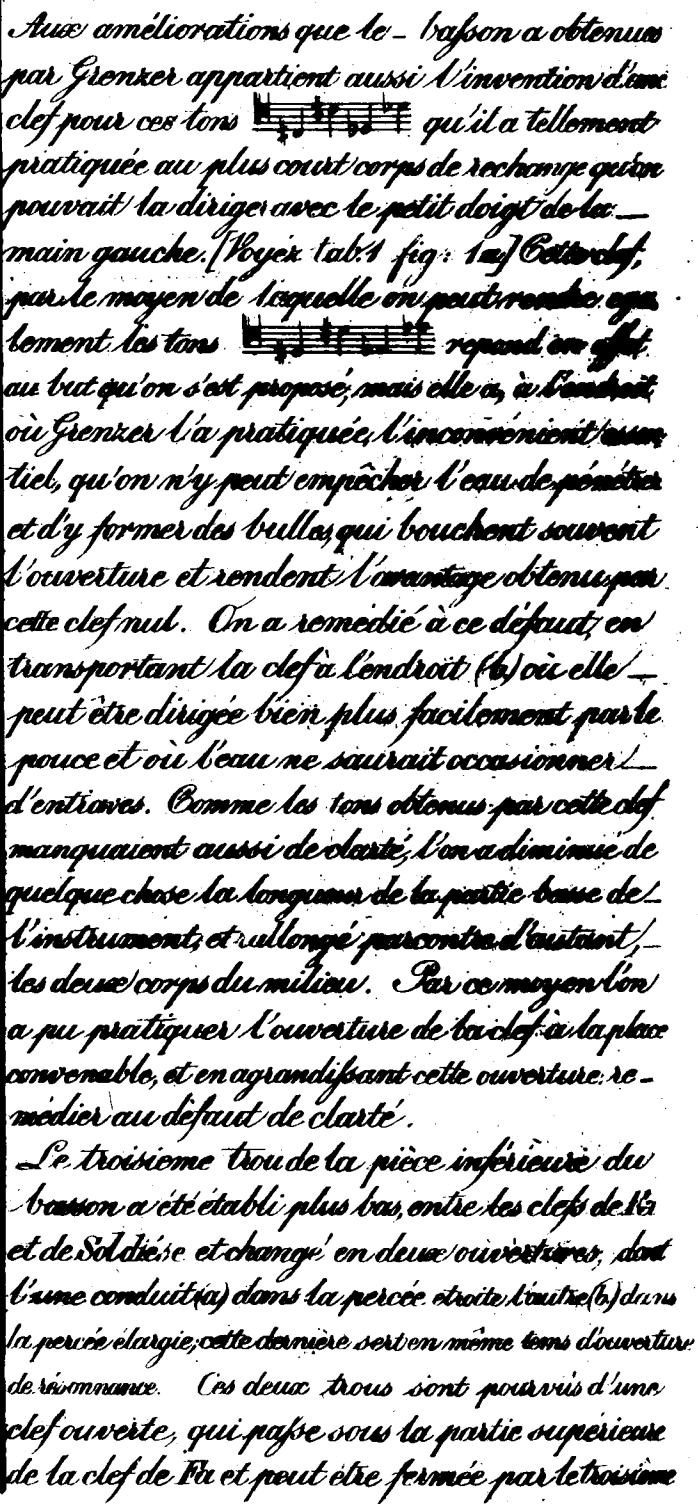 Aux améliorations que le - baſson a obtenues
par Grenzer appartient aussi l'invention d'une
clef pour ces tons qu'il a tellement
pratiquée au plus court corps de rechange qu'on
pouvait la diriger avec le petit doigt de la —
main gauche. [Voyéz tab. 1 fig: 1a] Cette clef,
par le moyen de laquelle on peut rendre ega
lement les tons repond en effet
au but qu'on s'est proposé, mais elle a, à l'endroit
où Grenzer l'a pratiquée, l'inconvénient essen
tiel, qu'on n'y peut empêcher l'eau de pénétrer
et d'y former des bulles, qui bouchent souvent
l'ouverture et rendent l'avantage obtenu par
cette clef nul. On a remédié à ce défaut, en
transportant la clef à l'endroit (b.) où elle —
peut être dirigée bien plus facilement par le
pouce et où l'eau ne saurait occasionner —
d'entraves. Comme les tons obtenus par cette clef
manquaient aussi de clarté, l'on a diminué de
quelque chose la longueur de la partie basse de -
l'instrument, et rallongé parcontre d'autant, -
les deux corps du milieu. Par ce moyen l'on
a pu pratiquer l'ouverture de la clef à la place
convenable, et en agrandiſsant cette ouverture re-
médier au défaut de clarté.
Le troisieme trou de la pièce inférieure du
basson a été établi plus bas, entre les clefs de Fa
et de Sol dièse et changé en deux ouvertures, dont
l'une conduit (a) dans la percée etroite l'autre (b) dans
la percée élargie, cette dernière sert en même tems d'ouverture
de résonnance. Ces deux trous sont pourvus d'une
clef ouverte, qui paſse sous la partie supérieure
de la clef de Fa et peut être fermée par le troisième